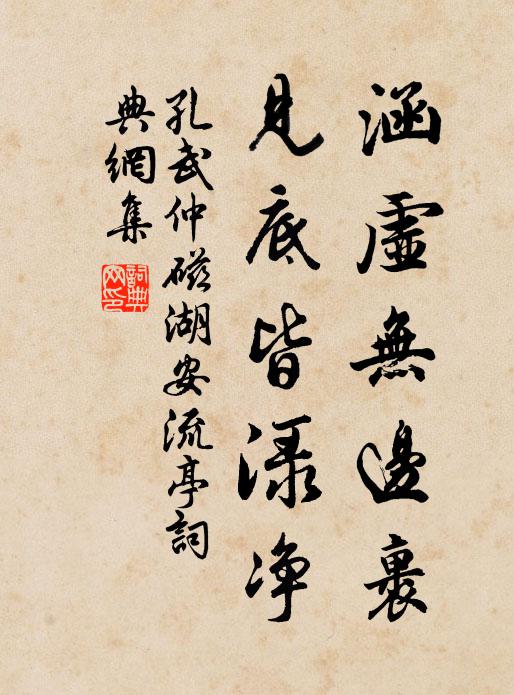 涵虛無邊裏
見底皆渌净
孔武仲磁湖安流亭詞
典網集
詞典
网印